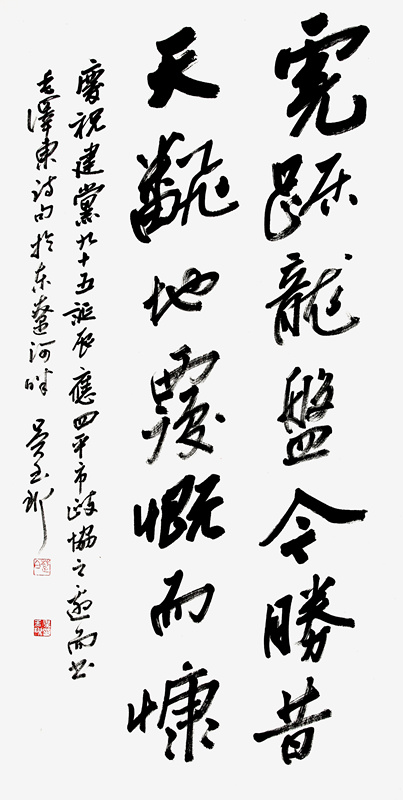 虎踞龍盤今勝昔
天飜地覆慨而慷
慶祝建黨九十五誕辰應四平市政協之邀而书
毛澤東詩句於东遼河畔 吴玉